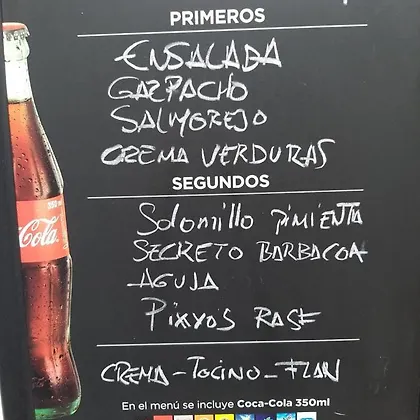 PRIMEROS
ENSALADA
GAZPACHO
SALMOREJO
CREMA VERDURAS
SEGUNDOS
Solomillo PIMIENTA
SECRETO BARBACOA
AGUJA
PIXXOS RAPE
CREMA - TOCINO - FLAN
350 ml
Coca-Cola
En el menú se incluye Coca-Cola 350ml